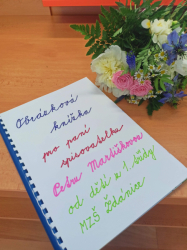 Obrázková
knížka
pro paní
spisovatelku
Petru Martiškovou
od dětí z 1. třídy
MZŠ Ždánice